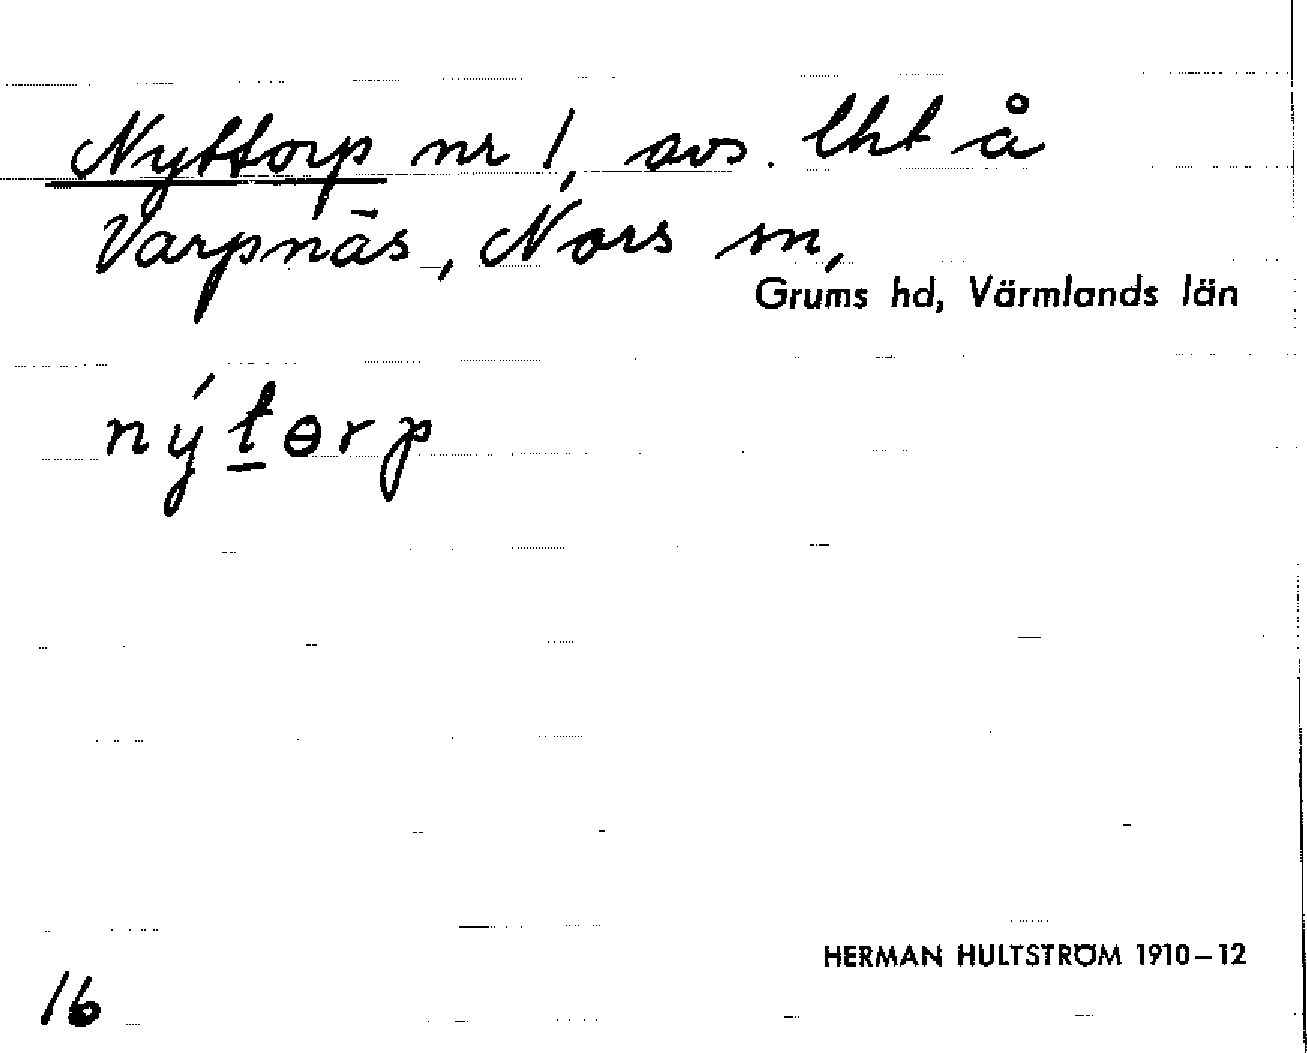 Nyttorp nr 1, avs. lht å
Varpnäs, Nors sn,
Grums hd, Värmlands län
nýt̲ɵrp
HERMAN HULTSTRÖM 1910–12
16